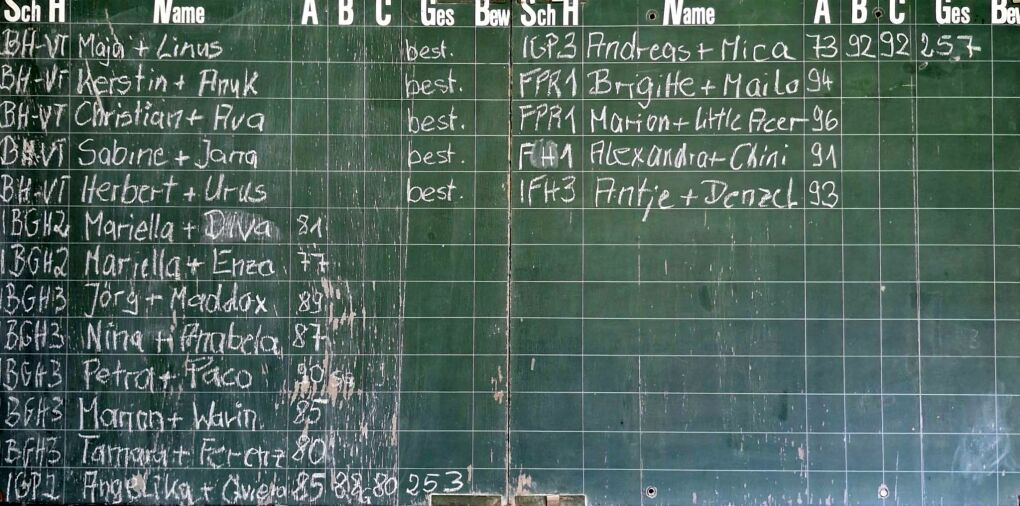 Sch H Name A B C Ges Bew
BH-VT Maja + Linus best.
BH-VT Kerstin + Anuk best.
BH-VT Christian + Ava best.
BH-VT Sabine + Jana best.
BH-VT Herbert + Urus best.
IBGH2 Mariella + Diva 81
IBGH2 Mariella + Enzo 77
IBGH3 Jörg + Maddox 89
IBGH3 Nina + Anabela 87
IBGH3 Petra + Paco 90
BGH3 Marion + Warin 85
BGH3 Tamara + Ferenz 80
IGP2 Angelika + 85 88 80 253
Sch H Name A B C Ges Bew
IGP3 Andreas + Mica 73 92 92 257
FPR1 Brigitte + Mailo 94
FPR1 Marion + Little Acer 96
FH1 Alexandra + Chini 91
IFH3 Antje + Denzel 93